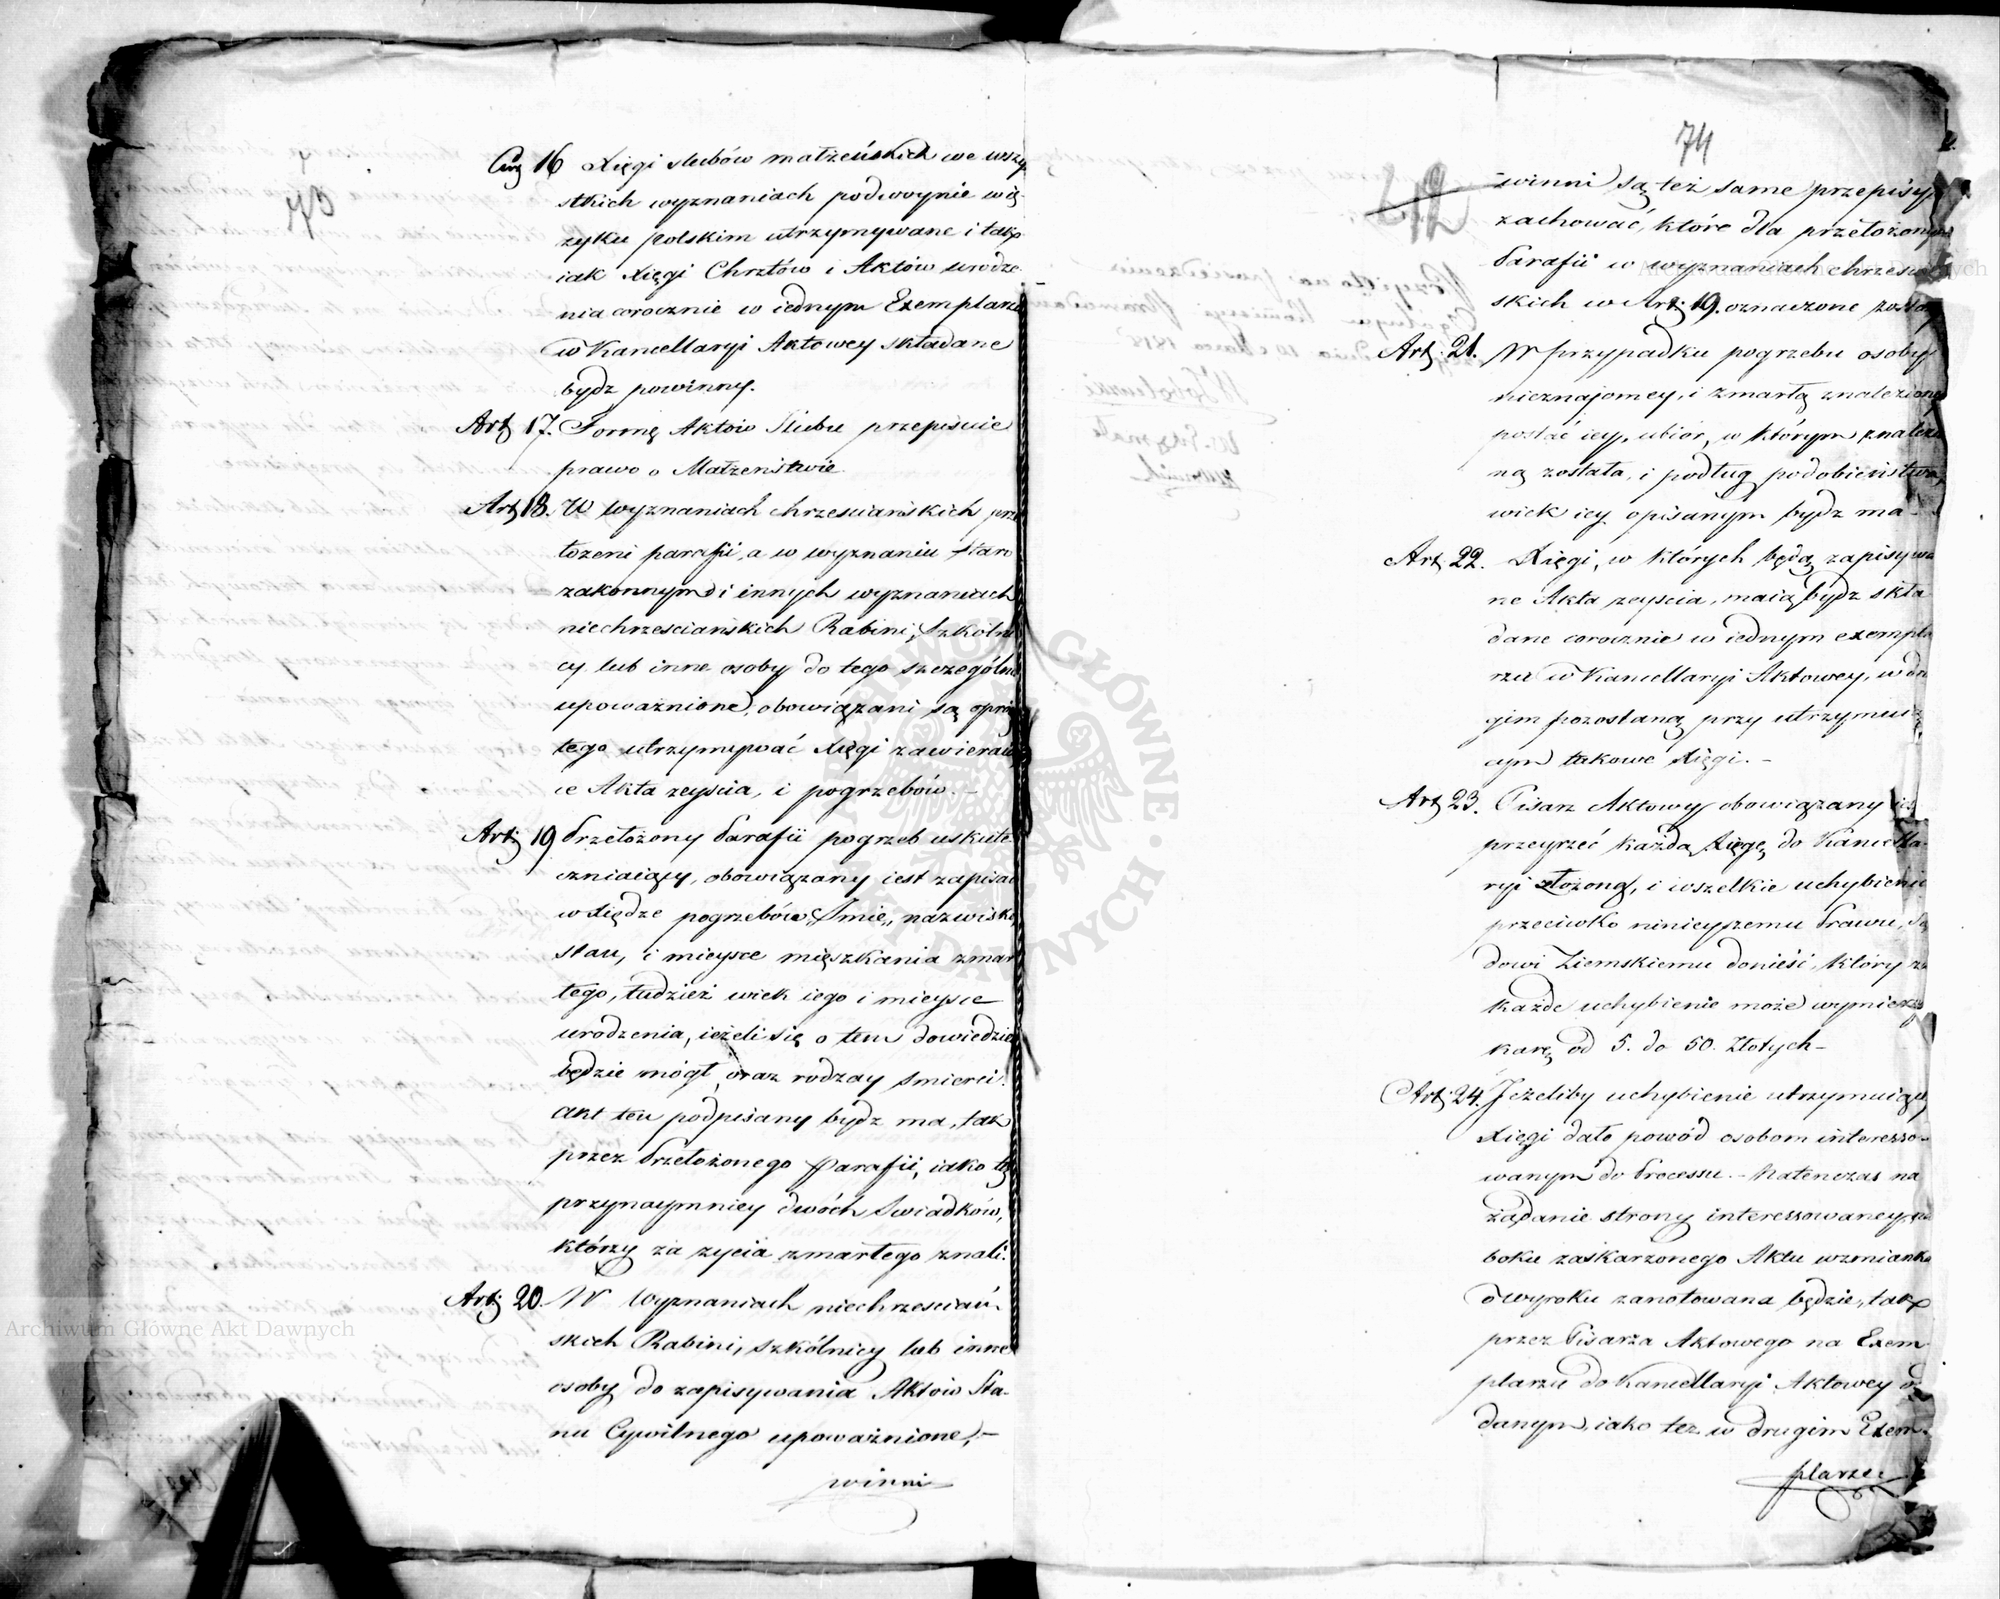 73
Art 16 Xięgi slubów małżeńskich we wszy-
stkich wyznaniach podwoynie w ię-
zyku polskim utrzymywane i tak
iak Xięgi Chrztów i Aktów urodze-
nia corocznie w iednym Exemplarzu
w Kancellaryi Aktowey składane
bydz powinny.
Art 17. Formę Aktów Slubu przepisuie
prawo o Małżeństwie.
Art 18. W wyznaniach chrzesciańskich prze
łożeni parafii, a w wyznaniu staro
zakonnym i innych wyznaniach
niechrzesciańskich Rabini, Szkolni
cy lub inne osoby do tego szczególnie
upoważnione, obowiązani są oprócz
tego utrzymywać Xięgi zawieraią
ce Akta zeyscia, i pogrzebów. –
Art: 19 Przełożony Parafii pogrzeb uskute-
czniaiący, obowiązany iest zapisać
w Xiędze pogrzebów, Imie, nazwisko,
stan, i mieysce mięszkania zmar
tego, tudzież wiek iego i mieysce
urodzenia, ieżeli się o tem dowiedzieć
będzie mógł, oraz rodzay smierci.
Akt ten podpisany bydz ma, tak
przez Przełożonego Parafii, iako też
przynaymniey dwóch Swiadków,
którzy za życia zmarłego znali.
Art: 20. W Wyznaniach niechrzesciań-
skich Rabini, szkólnicy lub inne
osoby do zapisywania Aktów Sta-
nu Cywilnego upoważnione, –
winni
74
winni są też same przepisy
zachować, które dla przełożonych
Parafii w wyznaniach chrzesciań
skich w Art: 19. oznaczone zostały
Art: 21. W przypadku pogrzebu osoby
nieznajomey, i zmarłą znalezioney
postać iey, ubior, w którym znalezio
ną została, i podług podobieństwa
wiek iey opisanym bydz ma. –
Art: 22. Xięgi, w których będą zapisywa
ne Akta zeyscia, maią bydz skła
dane corocznie w iednym exempla
rzu w Kancellaryi Aktowey, w dru
gim pozostaną przy utrzymuią
cym takowe Xięgi. –
Art 23. Pisarz Aktowy obowiązany iest
przeyrzeć każdą Xięgę do Kancella-
ryi złożoną, i wszelkie uchybienie
przeciwko ninieyszemu Prawu, Są
dowi Ziemskiemu donieść, który za
każde uchybienie może wymierzyć
karę od 5. do 50. Złotych –
Art: 24. Jeżeliby uchybienie utrzymuiącego
Xięgi dało powód osobom interesso-
wanym do Processu. – Natenczas na
żądanie strony interessowaney, na
boku zaskarżonego Aktu wzmianka
o wyroku zanotowana będzie, tak
przez Pisarza Aktowego na Exem
plarzu do Kancellaryi Aktowey od
danym, iako też w drugim Exem-
plarzu
Archiwum Główne Akt Dawnych
Archiwum Główne Akt Dawnych
ARCHIWUM GŁÓWNE AKT DAWNYCH